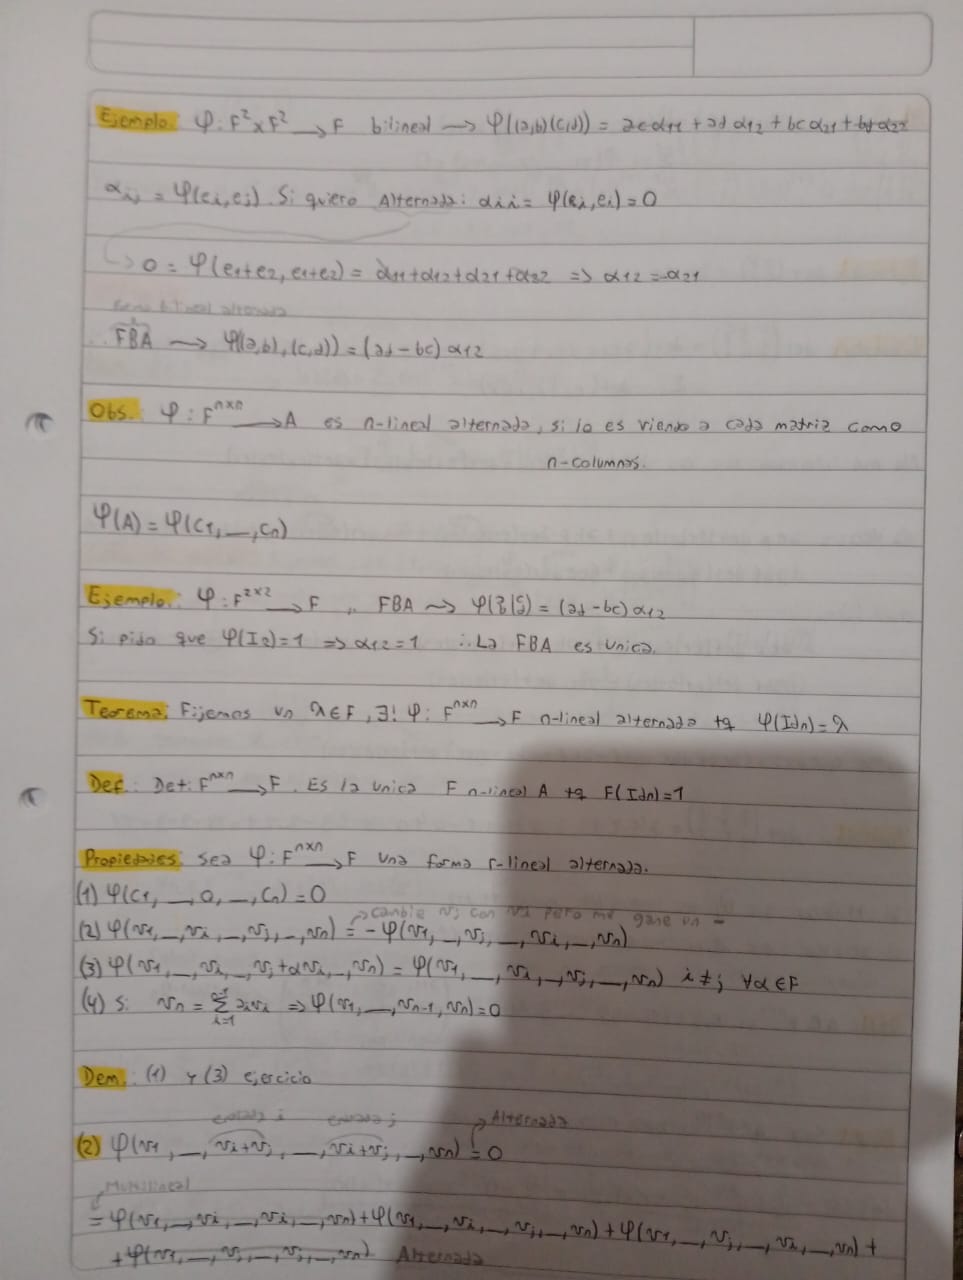 Ejemplo: φ: F²xF² → F bilineal → φ((a,b)(c,d)) = acα11 + adα12 + bcα21 + bdα22
αij = φ(ei,ej). Si quiero Alternada: αii = φ(ei,ei) = 0
↳ 0 = φ(e1+e2, e1+e2) = α11+α12+α21+α22 => α12 = -α21
forma bilineal alternada
∴ FBA → φ((a,b),(c,d)) = (ad-bc) α12
Obs.: φ: Fⁿˣⁿ → A es n-lineal alternada, si lo es viendo a cada matriz como
n-columnas.
φ(A) = φ(C1,_,Cn)
Ejemplo: φ: F²ˣ² → F FBA → φ(a b|c d) = (ad-bc) α12
Si pido que φ(I2)=1 => α12=1 ∴ La FBA es única.
Teorema: Fijemos un λ∈F, ∃! φ: Fⁿˣⁿ → F n-lineal alternada tq φ(Idn)=λ
Def: Det: Fⁿˣⁿ → F. Es la unica F n-lineal A tq F(Idn)=1
Propiedades: sea φ: Fⁿˣⁿ → F una forma r-lineal alternada.
(1) φ(C1,_,0,_,Cn)=0
→ cambie vj con vi pero me gane un -
(2) φ(v1,_,vi,_,vj,_,vn) = -φ(v1,_,vj,_,vi,_,vn)
(3) φ(v1,_,vi,_,vj+αvi,_,vn) = φ(v1,_,vi,_,vj,_,vn) i≠j ∀α∈F
(4) Si vn = Σ_{i=1}^{n-1} aivi => φ(v1,_,vn-1,vn)=0
Dem: (1) y (3) ejercicio
entrada i entrada j Alternada
(2) φ(v1,_,vi+vj,_,vi+vj,_,vn) = 0
Multilineal
= φ(v1,_,vi,_,vi,_,vn)+φ(v1,_,vi,_,vj,_,vn)+φ(v1,_,vj,_,vi,_,vn)+
+φ(v1,_,vj,_,vj,_,vn) Alternada